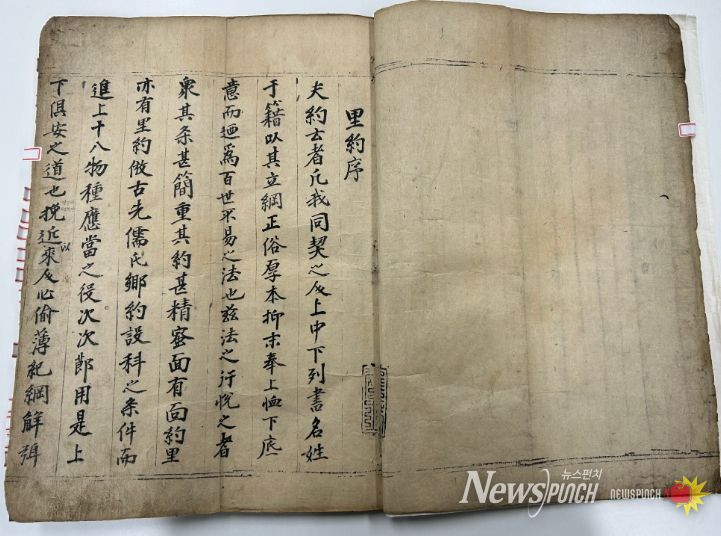 里約序
夫約云者凡我同契之員上中下列書名姓
于籍以其立綱正俗厚本抑末奉上恤下底
意而廼爲百世不易之法也玆法之行悅之者
衆其条甚簡重其約甚精密面有面約里
亦有里約倣古先儒氏鄉約設科之条件而
進上十八物種應當之役次次節用是上
下俱安之道也挽近以來人心偷薄紀綱解弛
NEWSPUNCH
뉴스펀치
NEWSPUNCH